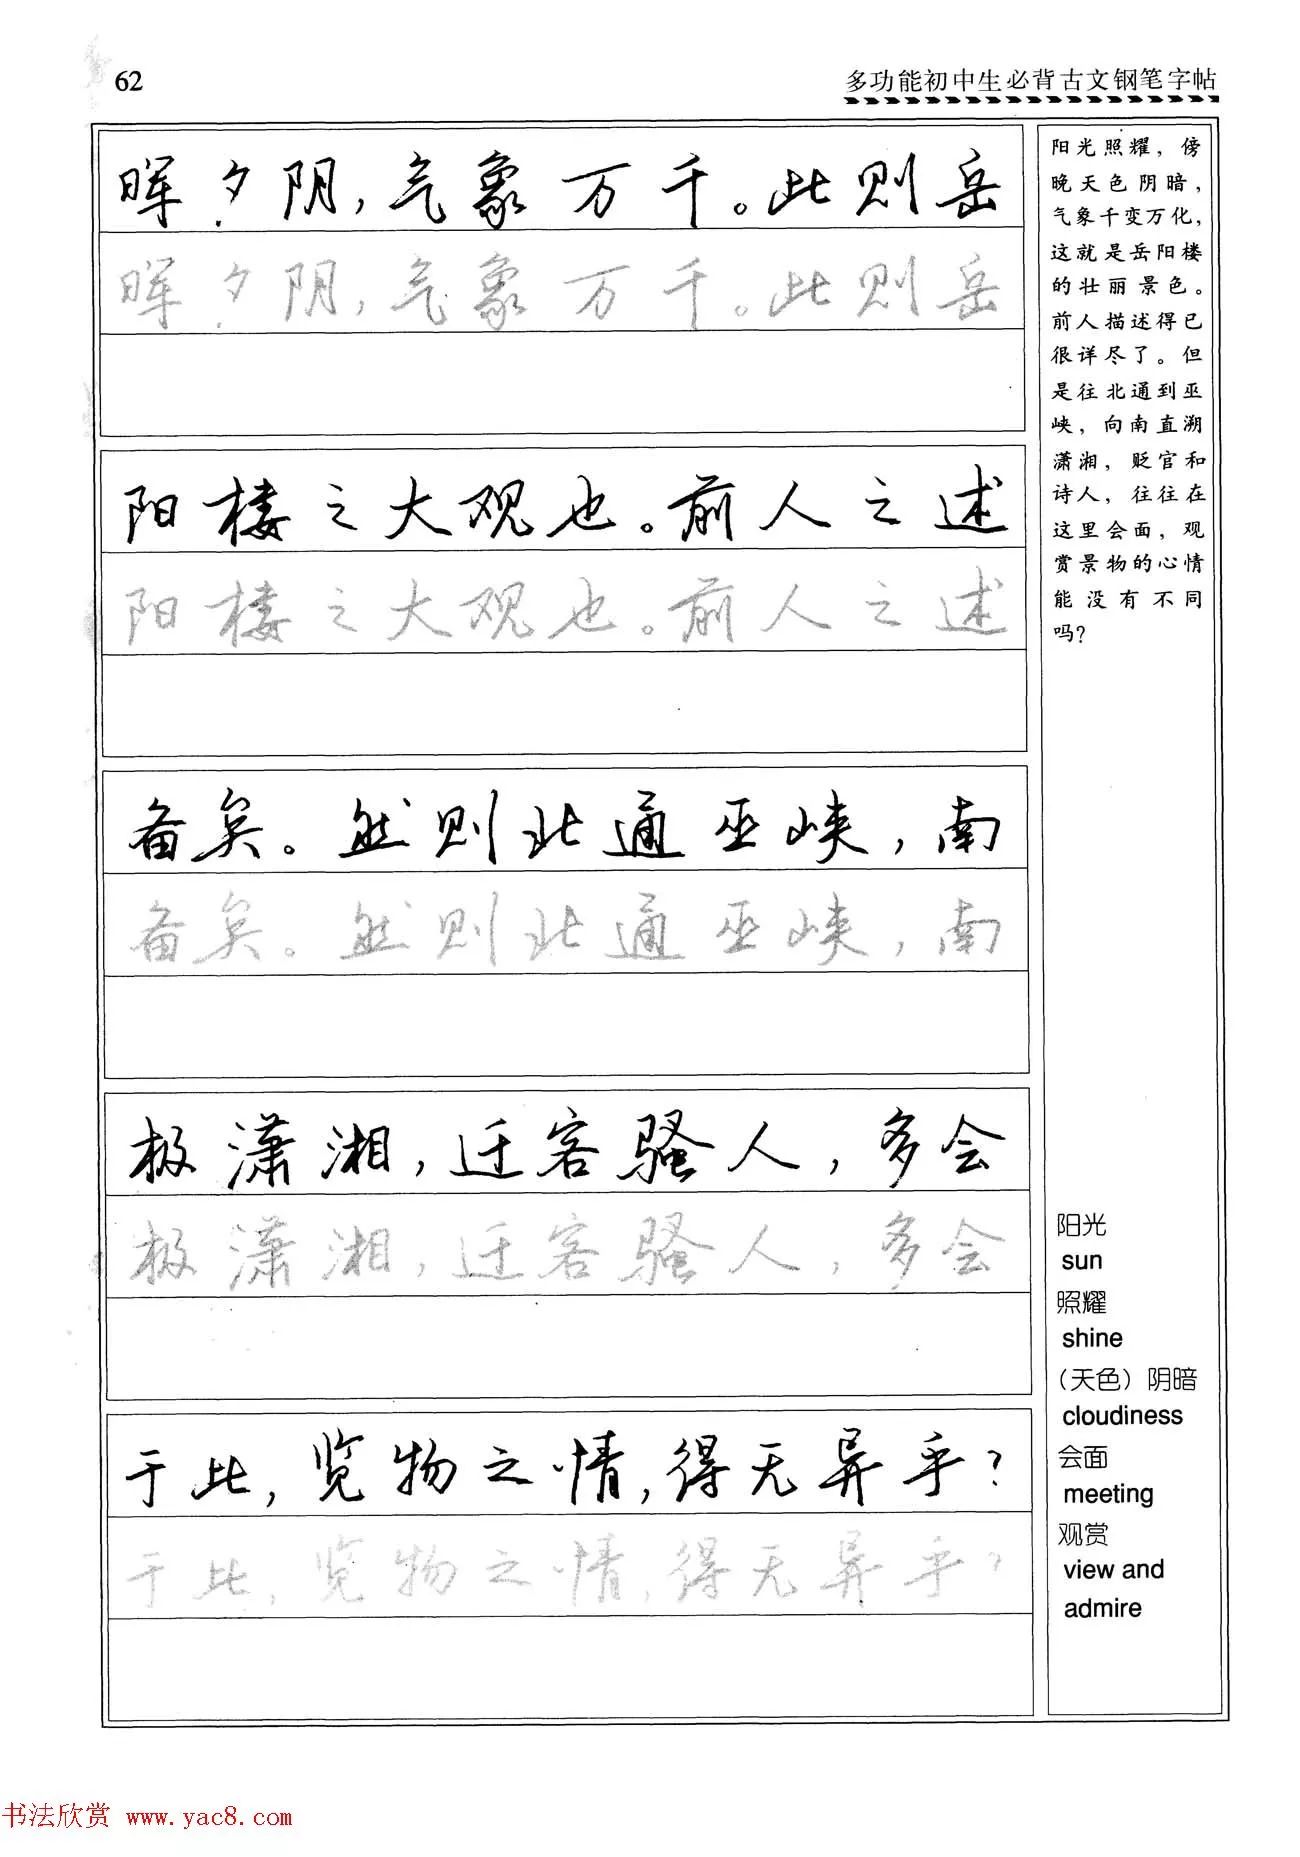 62
多功能初中生必背古文钢笔字帖
晖夕阴，气象万千。此则岳
晖夕阴，气象万千。此则岳
阳楼之大观也。前人之述
阳楼之大观也。前人之述
备矣。然则北通巫峡，南
备矣。然则北通巫峡，南
极潇湘，迁客骚人，多会
极潇湘，迁客骚人，多会
于此，览物之情，得无异乎？
于此，览物之情，得无异乎？
阳光照耀，傍
晚天色阴暗，
气象千变万化，
这就是岳阳楼
的壮丽景色。
前人描述得已
很详尽了。但
是往北通到巫
峡，向南直溯
潇湘，贬官和
诗人，往往在
这里会面，观
赏景物的心情
能没有不同
吗？
阳光
sun
照耀
shine
（天色）阴暗
cloudiness
会面
meeting
观赏
view and
admire
书法欣赏 www.yac8.com